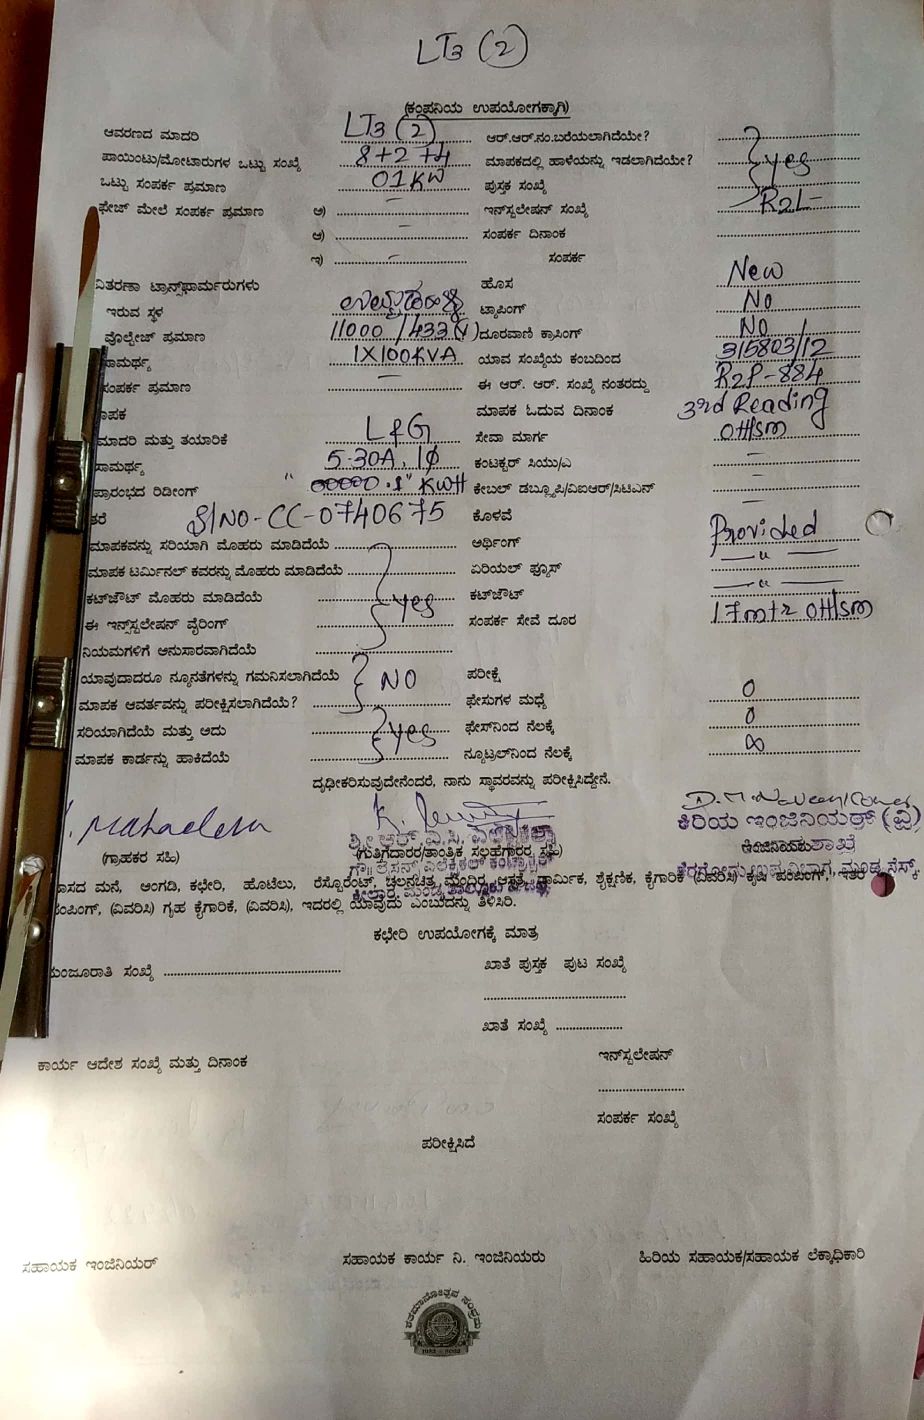 LT3 (2)
(ಕಂಪನಿಯ ಉಪಯೋಗಕ್ಕಾಗಿ)
ಆವರಣದ ಮಾದರಿ LT3 (2) ಆರ್.ಆರ್.ನಂ.ಬರೆಯಲಾಗಿದೆಯೇ?
ಪಾಯಿಂಟು/ಮೋಟಾರುಗಳ ಒಟ್ಟು ಸಂಖ್ಯೆ 8+2+4 ಮಾಪಕದಲ್ಲಿ ಹಾಳೆಯನ್ನು ಇಡಲಾಗಿದೆಯೇ? yes
ಒಟ್ಟು ಸಂಪರ್ಕ ಪ್ರಮಾಣ 01KW ಪುಸ್ತಕ ಸಂಖ್ಯೆ
ಫೇಜ್ ಮೇಲೆ ಸಂಪರ್ಕ ಪ್ರಮಾಣ ಅ) – ಇನ್‌ಸ್ಟಲೇಷನ್ ಸಂಖ್ಯೆ R2L-
ಆ) – ಸಂಪರ್ಕ ದಿನಾಂಕ
ಇ) – ಸಂಪರ್ಕ
ವಿತರಣಾ ಟ್ರಾನ್ಸ್‌ಫಾರ್ಮರುಗಳು ಹೊಸ New
ಇರುವ ಸ್ಥಳ ಟ್ಯಾಪಿಂಗ್ No
ವೋಲ್ಟೇಜ್ ಪ್ರಮಾಣ 11000/433(V) ದೂರವಾಣಿ ಕ್ರಾಸಿಂಗ್ No
ಸಾಮರ್ಥ್ಯ 1X100KVA ಯಾವ ಸಂಖ್ಯೆಯ ಕಂಬದಿಂದ 315803/12
ಸಂಪರ್ಕ ಪ್ರಮಾಣ – ಈ ಆರ್. ಆರ್. ಸಂಖ್ಯೆ ನಂತರದ್ದು R2P-884
ಾಪಕ ಮಾಪಕ ಓದುವ ದಿನಾಂಕ 3rd Reading
ಮಾದರಿ ಮತ್ತು ತಯಾರಿಕೆ L&G ಸೇವಾ ಮಾರ್ಗ OH/sm
ಸಾಮರ್ಥ್ಯ 5-30A, 1φ ಕಂಟಕ್ಟರ್ ಸಿಯು/ಎ –
ಪ್ರಾರಂಭದ ರಿಡೀಂಗ್ KWH ಕೇಬಲ್ ಡಬ್ಲ್ಯೂಪಿ/ವಿಐಆರ್/ಸಿಟಿಎಸ್ –
ತರೆ S/NO-CC-0740675 ಕೊಳವೆ –
ಮಾಪಕವನ್ನು ಸರಿಯಾಗಿ ಮೊಹರು ಮಾಡಿದೆಯೆ ಅರ್ಥಿಂಗ್ Provided
ಮಾಪಕ ಟರ್ಮಿನಲ್ ಕವರನ್ನು ಮೊಹರು ಮಾಡಿದೆಯೆ ಏರಿಯಲ್ ಫ್ಯೂಸ್ — " —
ಕಟ್‌ಜೌಟ್ ಮೊಹರು ಮಾಡಿದೆಯೆ yes ಕಟ್‌ಜೌಟ್ — " —
ಈ ಇನ್‌ಸ್ಟಲೇಷನ್ ವೈರಿಂಗ್ ಸಂಪರ್ಕ ಸೇವೆ ದೂರ 17mtr OH/sm
ನಿಯಮಗಳಿಗೆ ಅನುಸಾರವಾಗಿದೆಯೆ
ಯಾವುದಾದರೂ ನ್ಯೂನತೆಗಳನ್ನು ಗಮನಿಸಲಾಗಿದೆಯೆ NO ಪರೀಕ್ಷೆ
ಮಾಪಕ ಆವರ್ತವನ್ನು ಪರೀಕ್ಷಿಸಲಾಗಿದೆಯೆ? ಫೇಸುಗಳ ಮಧ್ಯೆ 0
ಸರಿಯಾಗಿದೆಯೆ ಮತ್ತು ಅದು yes ಫೇಸ್‌ನಿಂದ ನೆಲಕ್ಕೆ 0
ಮಾಪಕ ಕಾರ್ಡನ್ನು ಹಾಕಿದೆಯೆ ನ್ಯೂಟ್ರಲ್‌ನಿಂದ ನೆಲಕ್ಕೆ ∞
ದೃಢೀಕರಿಸುವುದೇನೆಂದರೆ, ನಾನು ಸ್ಥಾವರವನ್ನು ಪರೀಕ್ಷಿಸಿದ್ದೇನೆ.
ಕಿರಿಯ ಇಂಜಿನಿಯರ್ (ವಿ)
(ಗ್ರಾಹಕರ ಸಹಿ) (ಗುತ್ತಿಗೆದಾರರ/ತಾಂತ್ರಿಕ ಸಲಹೆಗಾರರ ಸಹಿ) ಶಾಖೆ
ಾಸದ ಮನೆ, ಅಂಗಡಿ, ಕಛೇರಿ, ಹೊಟೆಲು, ರೆಸ್ಟೊರೆಂಟ್, ಚಲನಚಿತ್ರ ಮಂದಿರ, ಆಸ್ಪತ್ರೆ, ಧಾರ್ಮಿಕ, ಶೈಕ್ಷಣಿಕ, ಕೈಗಾರಿಕೆ (ವಿವರಿಸಿ) ಕೃಷಿ ಪಂಪಿಂಗ್, ಇತರೆ
ಪಂಪಿಂಗ್, (ವಿವರಿಸಿ) ಗೃಹ ಕೈಗಾರಿಕೆ, (ವಿವರಿಸಿ), ಇದರಲ್ಲಿ ಯಾವುದು ಎಂಬುದನ್ನು ತಿಳಿಸಿರಿ.
ಕಛೇರಿ ಉಪಯೋಗಕ್ಕೆ ಮಾತ್ರ
ಮಂಜೂರಾತಿ ಸಂಖ್ಯೆ ಖಾತೆ ಪುಸ್ತಕ ಪುಟ ಸಂಖ್ಯೆ
ಖಾತೆ ಸಂಖ್ಯೆ
ಕಾರ್ಯ ಆದೇಶ ಸಂಖ್ಯೆ ಮತ್ತು ದಿನಾಂಕ ಇನ್‌ಸ್ಟಲೇಷನ್
ಸಂಪರ್ಕ ಸಂಖ್ಯೆ
ಪರೀಕ್ಷಿಸಿದೆ
ಸಹಾಯಕ ಇಂಜಿನಿಯರ್ ಸಹಾಯಕ ಕಾರ್ಯ ನಿ. ಇಂಜಿನಿಯರು ಹಿರಿಯ ಸಹಾಯಕ/ಸಹಾಯಕ ಲೆಕ್ಕಾಧಿಕಾರಿ